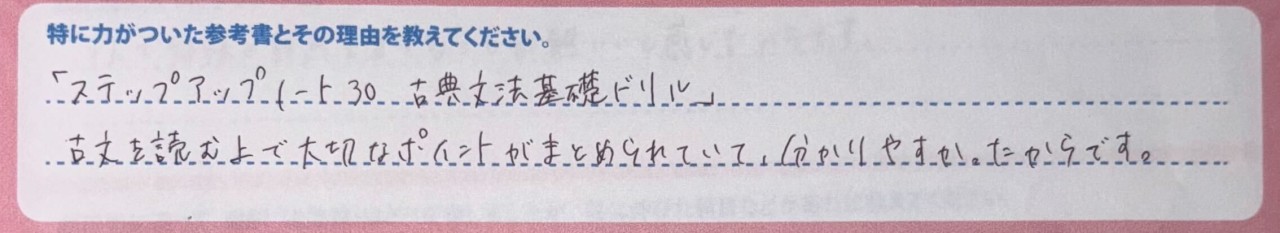 特に力がついた参考書とその理由を教えてください。
「ステップアップノート30 古典文法基礎ドリル」
古文を読む上で大切なポイントがまとめられていて、分かりやすかったからです。